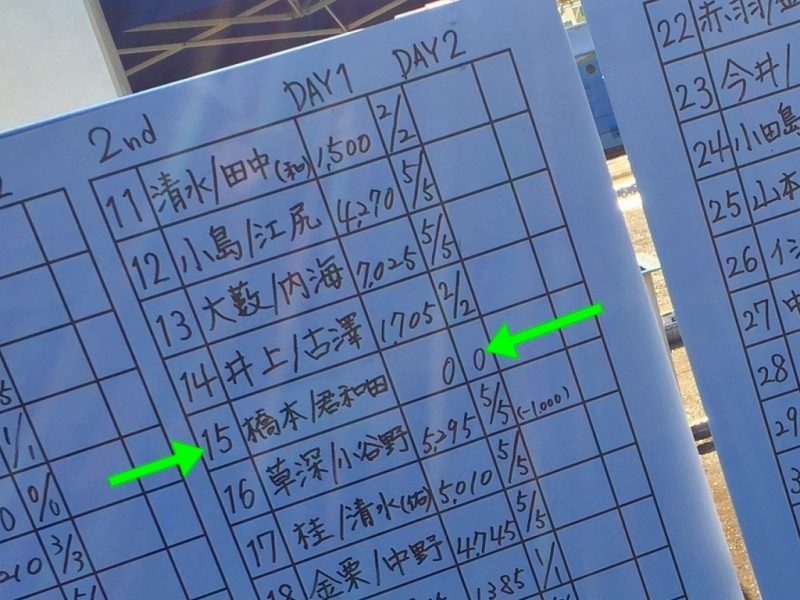 2nd DAY1 DAY2
11 清水/田中(和) 1,500 2/2
12 小島/江尻 4,270 5/5
13 大藪/内海 7,025 5/5
14 井上/古澤 1,705 2/2
15 橋本/君和田 0 0
16 草深/小谷野 5,295 5/5 (-1,000)
17 桂/清水(佑) 5,010 5/5
18 金栗/中野 4,745 5/5
1,385 1/1
1/1
0 0/0
210 3/3
22 赤羽/
23 今井/
24 小田島
25 山本
26
27 中
28
29